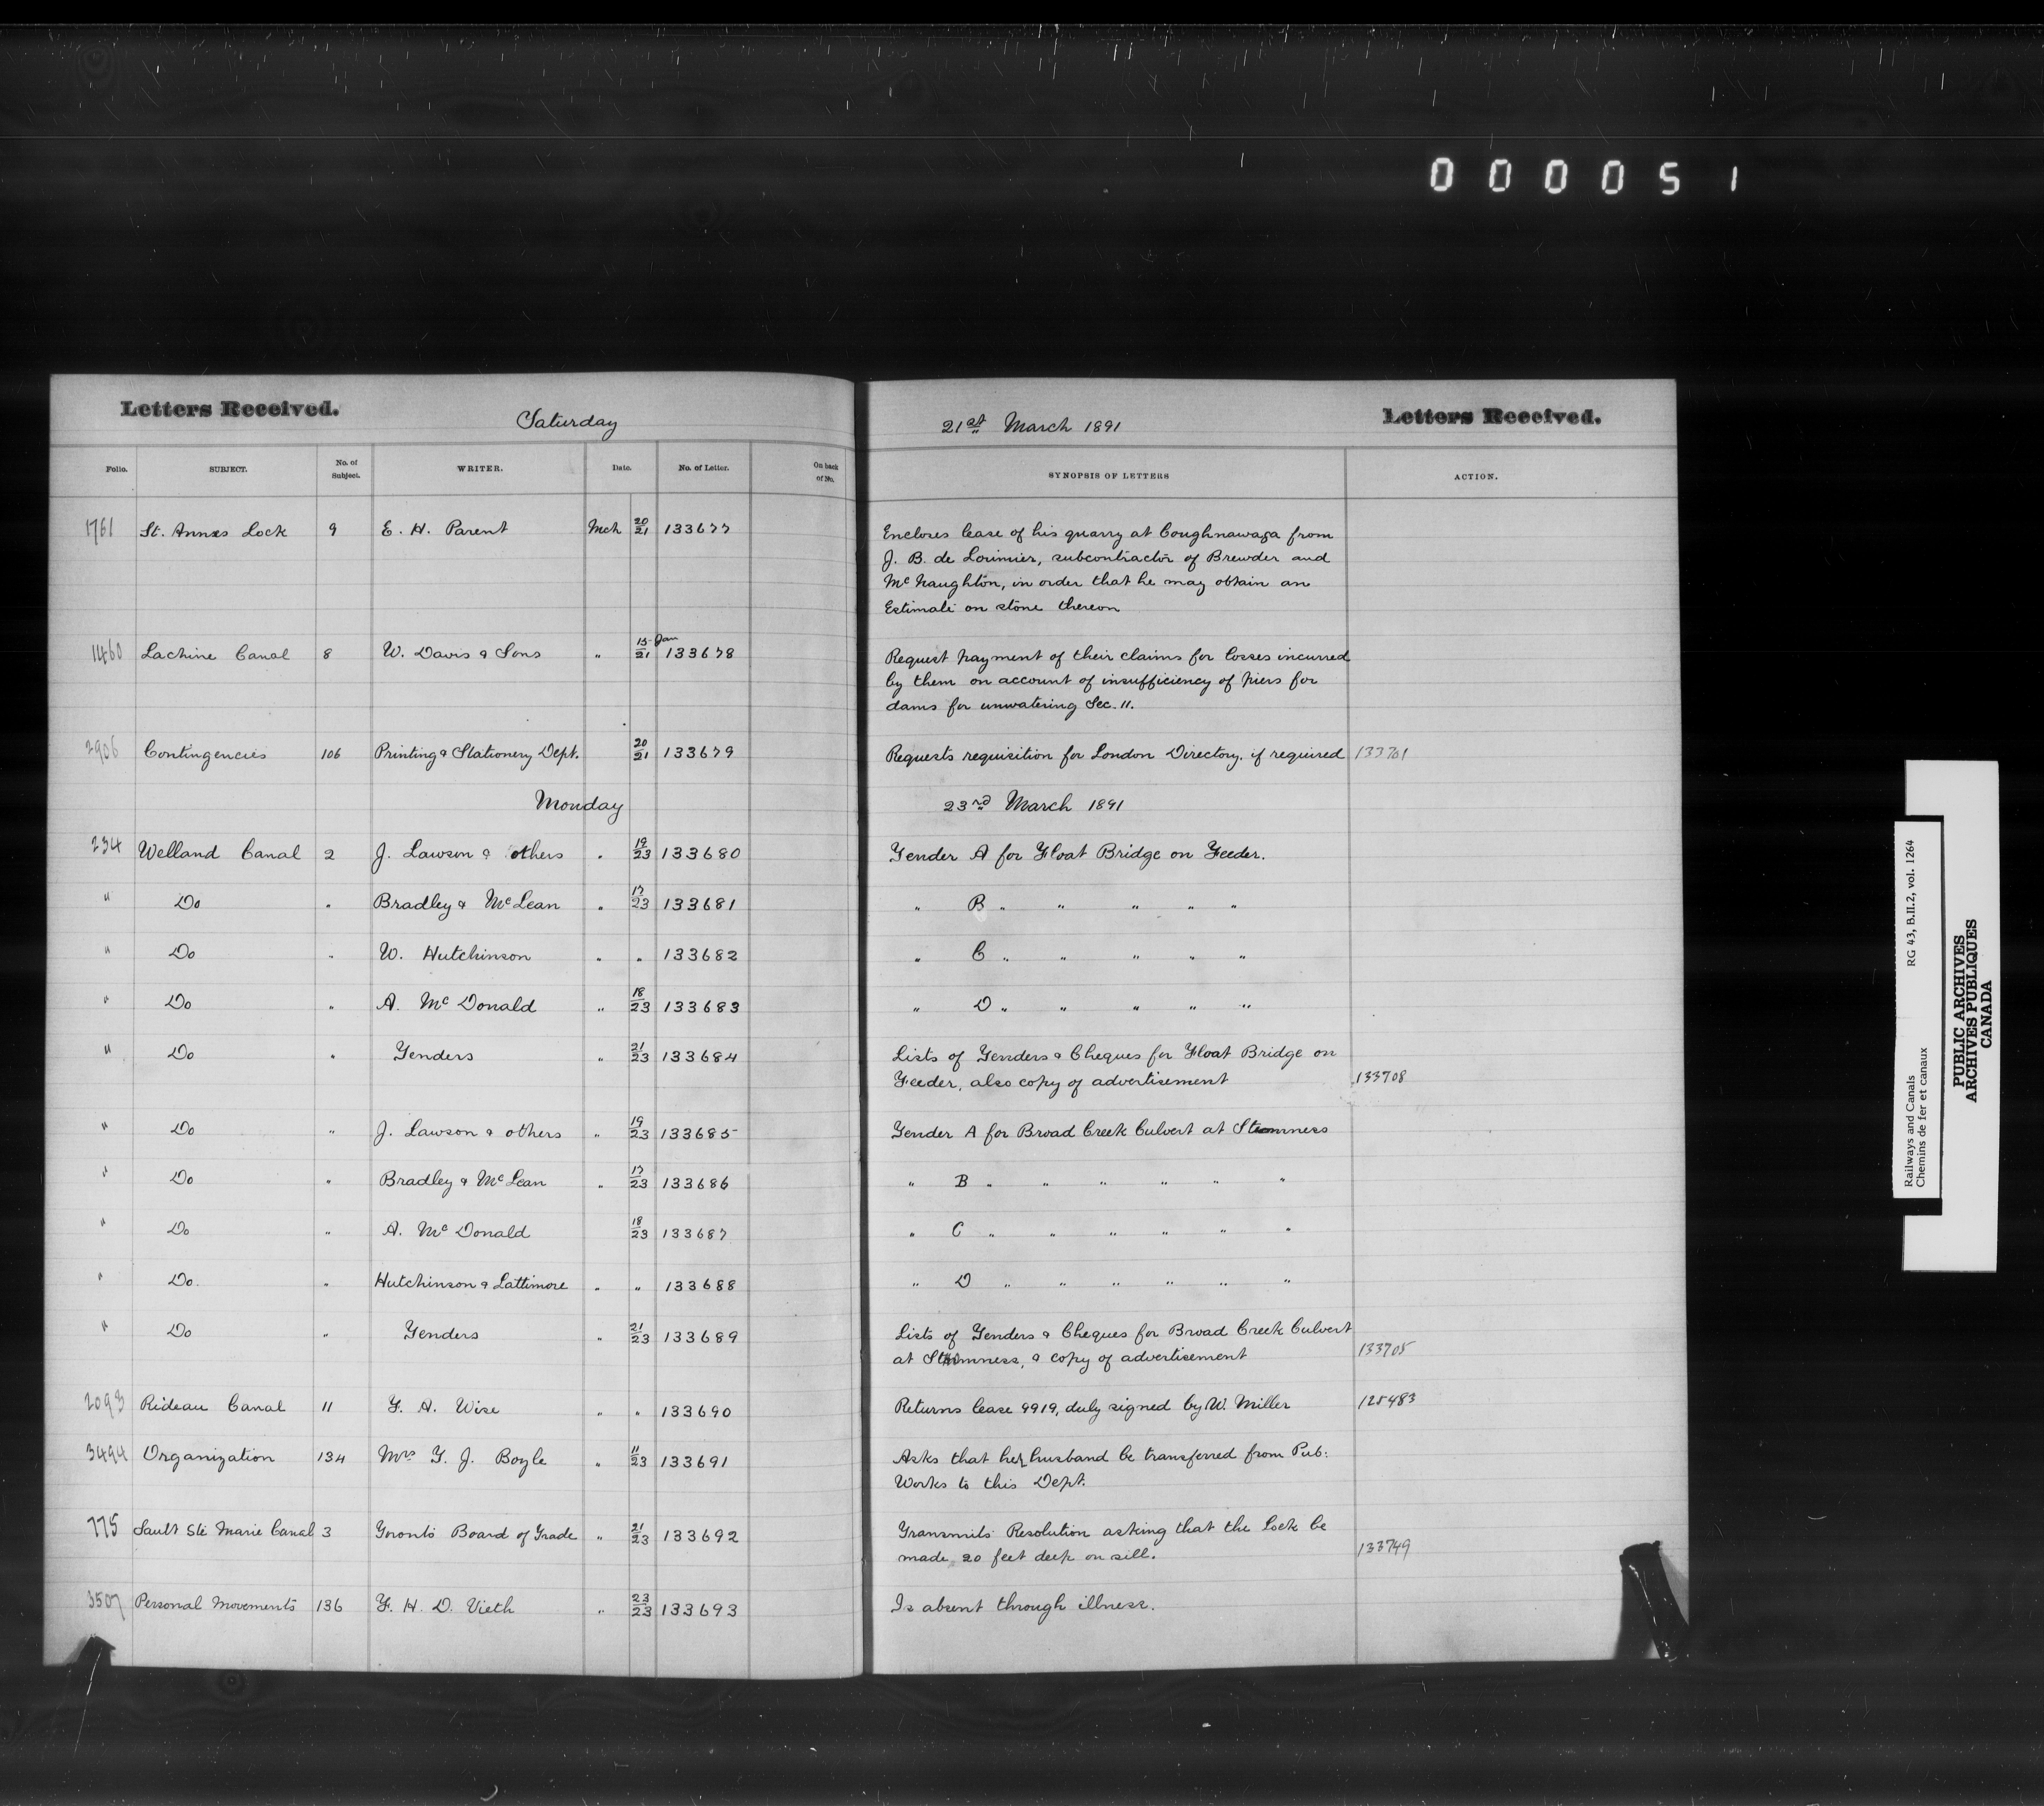 000051
Letters Received. Saturday 21st March 1891 Letters Received.
Folio. SUBJECT. No. of Subject. WRITER. Date. No. of Letter. On back of No. SYNOPSIS OF LETTERS ACTION.
1761 St. Annes Lock 9 E. H. Parent Mch 20/21 133677 Encloses lease of his quarry at Coughnawaga from
J. B. de Lorimier, subcontractor of Brewder and
McNaughton, in order that he may obtain an
Estimate on stone thereon
1460 Lachine Canal 8 W. Davis & Sons " 15 Jan/21 133678 Request payment of their claims for losses incurred
by them on account of insufficiency of piers for
dams for unwatering Sec. 11.
2906 Contingencies 106 Printing & Stationery Dept. 20/21 133679 Requests requisition for London Directory, if required 133761
Monday 23rd March 1891
234 Welland Canal 2 J. Lawson & others " 19/23 133680 Tender A for Float Bridge on Feeder.
" Do " Bradley & McLean " 17/23 133681 " B " " " " "
" Do " W. Hutchinson " " 133682 " C " " " " "
" Do " A. McDonald " 18/23 133683 " D " " " " "
" Do " Tenders " 21/23 133684 Lists of Tenders & Cheques for Float Bridge on
Feeder, also copy of advertisement 133708
" Do " J. Lawson & others " 19/23 133685 Tender A for Broad Creek Culvert at Stromness
" Do " Bradley & McLean " 17/23 133686 " B " " " " " "
" Do " A. McDonald 18/23 133687 " C " " " " " "
" Do. " Hutchinson & Lattimore " " 133688 " D " " " " " "
" Do " Tenders " 21/23 133689 Lists of Tenders & Cheques for Broad Creek Culvert
at Stromness, & copy of advertisement 133705
2093 Rideau Canal 11 F. A. Wise " " 133690 Returns lease 9919, duly signed by W. Miller 125483
3494 Organization 134 Mrs T. J. Boyle " 11/23 133691 Asks that her husband be transferred from Pub:
Works to this Dept.
775 Sault Ste Marie Canal 3 Toronto Board of Trade " 21/23 133692 Transmits Resolution asking that the Lock be
made 20 feet deep on sill. 133749
3507 Personal Movements 136 F. H. D. Vieth " 23/23 133693 Is absent through illness.
Railways and Canals RG 43, B.II.2, vol. 1264
Chemins de fer et canaux
PUBLIC ARCHIVES
ARCHIVES PUBLIQUES
CANADA